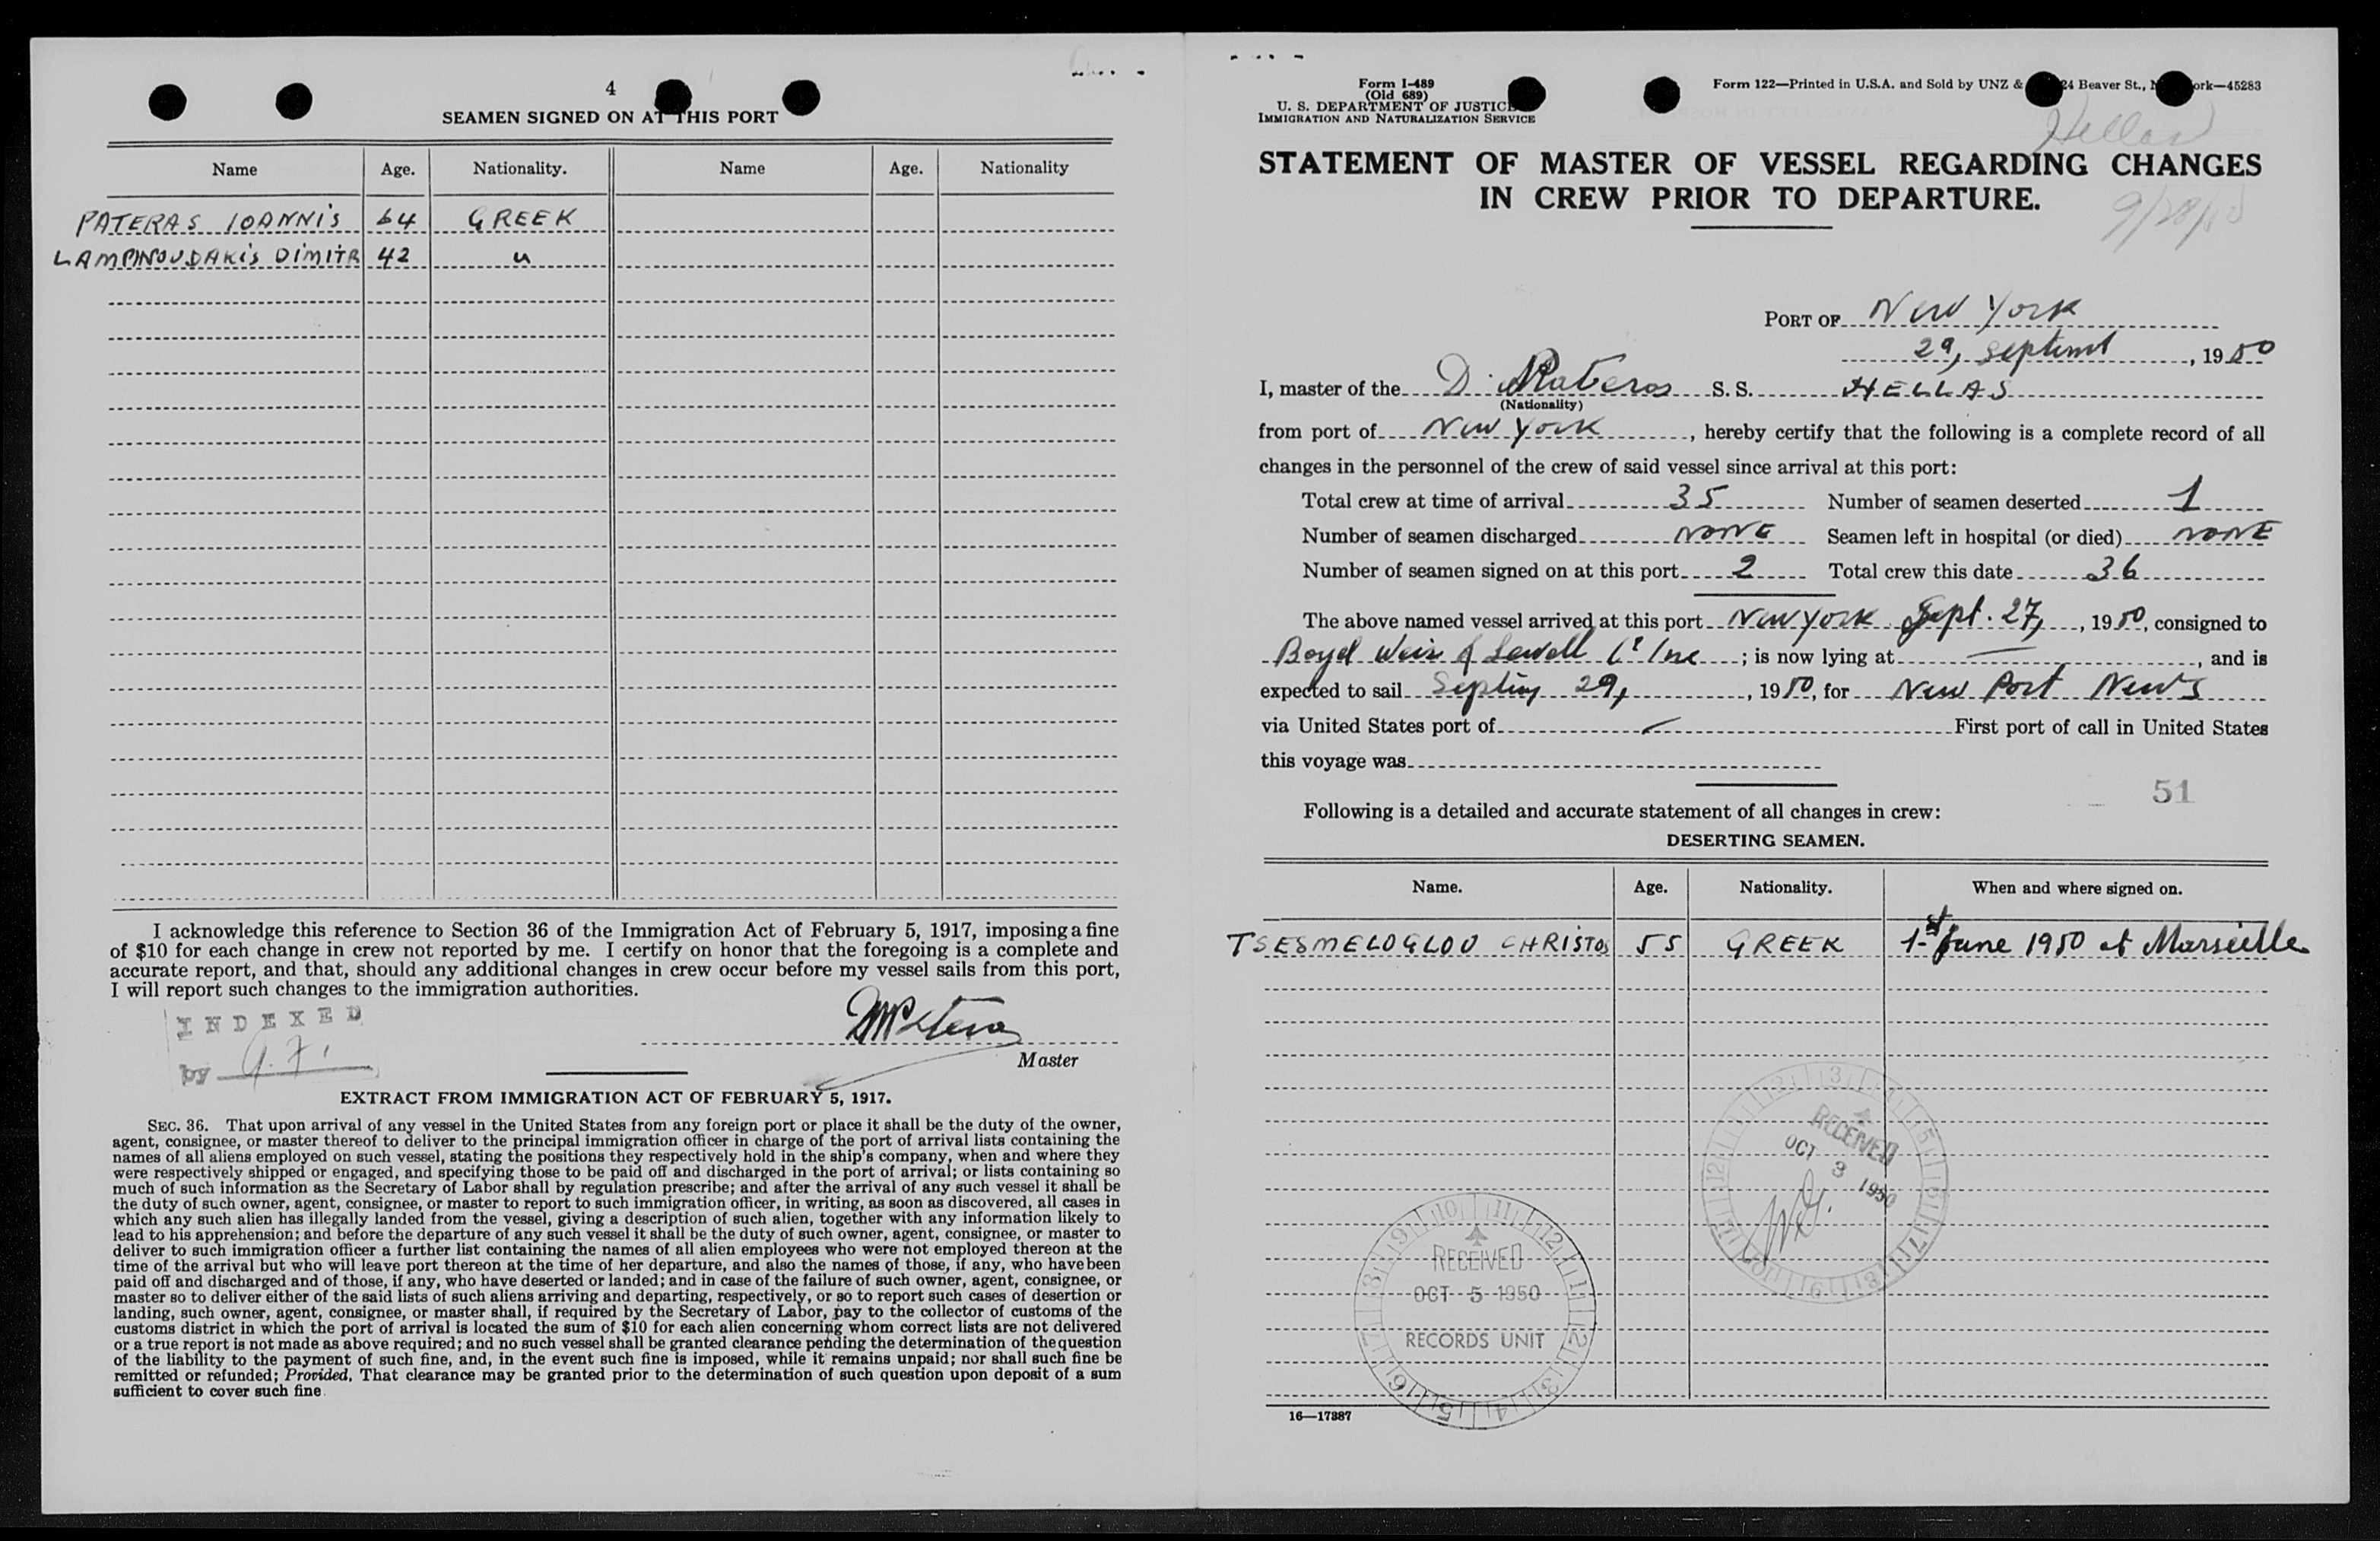 4
SEAMEN SIGNED ON AT THIS PORT
Name Age. Nationality. Name Age. Nationality
PATERAS IOANNIS 64 GREEK
LAMPINOUDAKIS DIMITR 42 "
I acknowledge this reference to Section 36 of the Immigration Act of February 5, 1917, imposing a fine
of $10 for each change in crew not reported by me. I certify on honor that the foregoing is a complete and
accurate report, and that, should any additional changes in crew occur before my vessel sails from this port,
I will report such changes to the immigration authorities.
INDEXED
by
Master
EXTRACT FROM IMMIGRATION ACT OF FEBRUARY 5, 1917.
SEC. 36. That upon arrival of any vessel in the United States from any foreign port or place it shall be the duty of the owner,
agent, consignee, or master thereof to deliver to the principal immigration officer in charge of the port of arrival lists containing the
names of all aliens employed on such vessel, stating the positions they respectively hold in the ship's company, when and where they
were respectively shipped or engaged, and specifying those to be paid off and discharged in the port of arrival; or lists containing so
much of such information as the Secretary of Labor shall by regulation prescribe; and after the arrival of any such vessel it shall be
the duty of such owner, agent, consignee, or master to report to such immigration officer, in writing, as soon as discovered, all cases in
which any such alien has illegally landed from the vessel, giving a description of such alien, together with any information likely to
lead to his apprehension; and before the departure of any such vessel it shall be the duty of such owner, agent, consignee, or master to
deliver to such immigration officer a further list containing the names of all alien employees who were not employed thereon at the
time of the arrival but who will leave port thereon at the time of her departure, and also the names of those, if any, who have been
paid off and discharged and of those, if any, who have deserted or landed; and in case of the failure of such owner, agent, consignee, or
master so to deliver either of the said lists of such aliens arriving and departing, respectively, or so to report such cases of desertion or
landing, such owner, agent, consignee, or master shall, if required by the Secretary of Labor, pay to the collector of customs of the
customs district in which the port of arrival is located the sum of $10 for each alien concerning whom correct lists are not delivered
or a true report is not made as above required; and no such vessel shall be granted clearance pending the determination of the question
of the liability to the payment of such fine, and, in the event such fine is imposed, while it remains unpaid; nor shall such fine be
remitted or refunded; Provided, That clearance may be granted prior to the determination of such question upon deposit of a sum
sufficient to cover such fine.
Form I-489
(Old 689)
U. S. DEPARTMENT OF JUSTICE
IMMIGRATION AND NATURALIZATION SERVICE
Form 122—Printed in U.S.A. and Sold by UNZ & 24 Beaver St., ork—45283
Hellas
STATEMENT OF MASTER OF VESSEL REGARDING CHANGES
IN CREW PRIOR TO DEPARTURE.
PORT OF New York
29, septemt, 1950
I, master of the D. Pateras S. S. HELLAS
(Nationality)
from port of New York, hereby certify that the following is a complete record of all
changes in the personnel of the crew of said vessel since arrival at this port:
Total crew at time of arrival 35 Number of seamen deserted 1
Number of seamen discharged NONE Seamen left in hospital (or died) NONE
Number of seamen signed on at this port 2 Total crew this date 36
The above named vessel arrived at this port New York Sept. 27, 1950, consigned to
Boyd Weir & Sewell Inc; is now lying at —, and is
expected to sail 29, 1950, for New Port News
via United States port of — First port of call in United States
this voyage was
51
Following is a detailed and accurate statement of all changes in crew:
DESERTING SEAMEN.
Name. Age. Nationality. When and where signed on.
TSESMELOGLOU CHRISTOS 55 GREEK 1st June 1950 at Marseille
RECEIVED
OCT 3 1950
RECEIVED
OCT 5 1950
RECORDS UNIT
16—17387